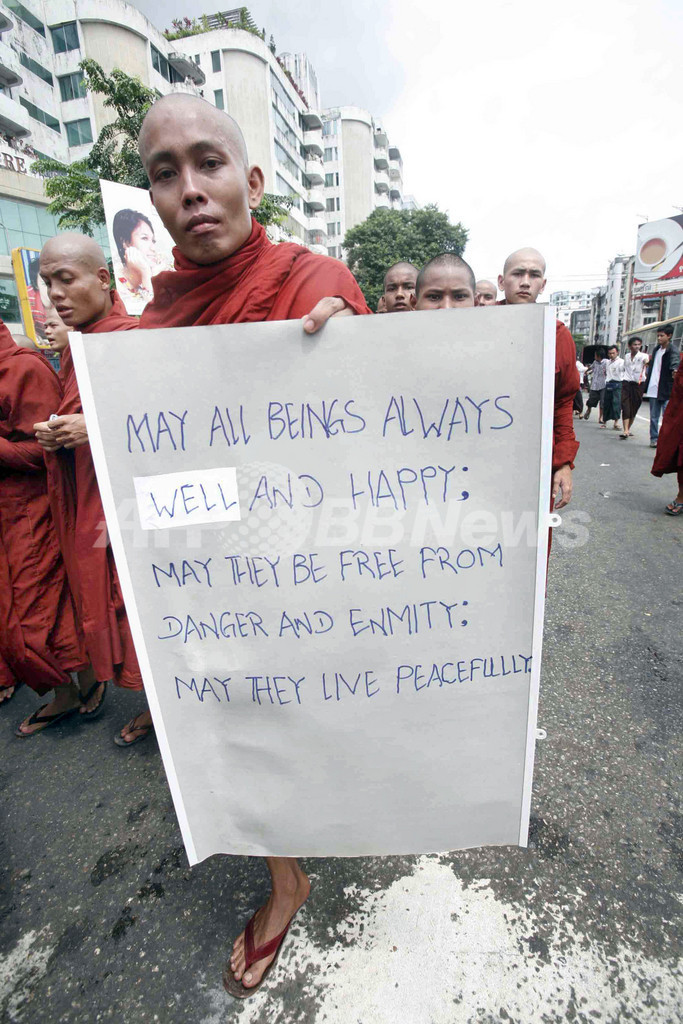 MAY ALL BEINGS ALWAYS
WELL AND HAPPY;
MAY THEY BE FREE FROM
DANGER AND ENMITY;
MAY THEY LIVE PEACEFULLY.
AFP BBNews